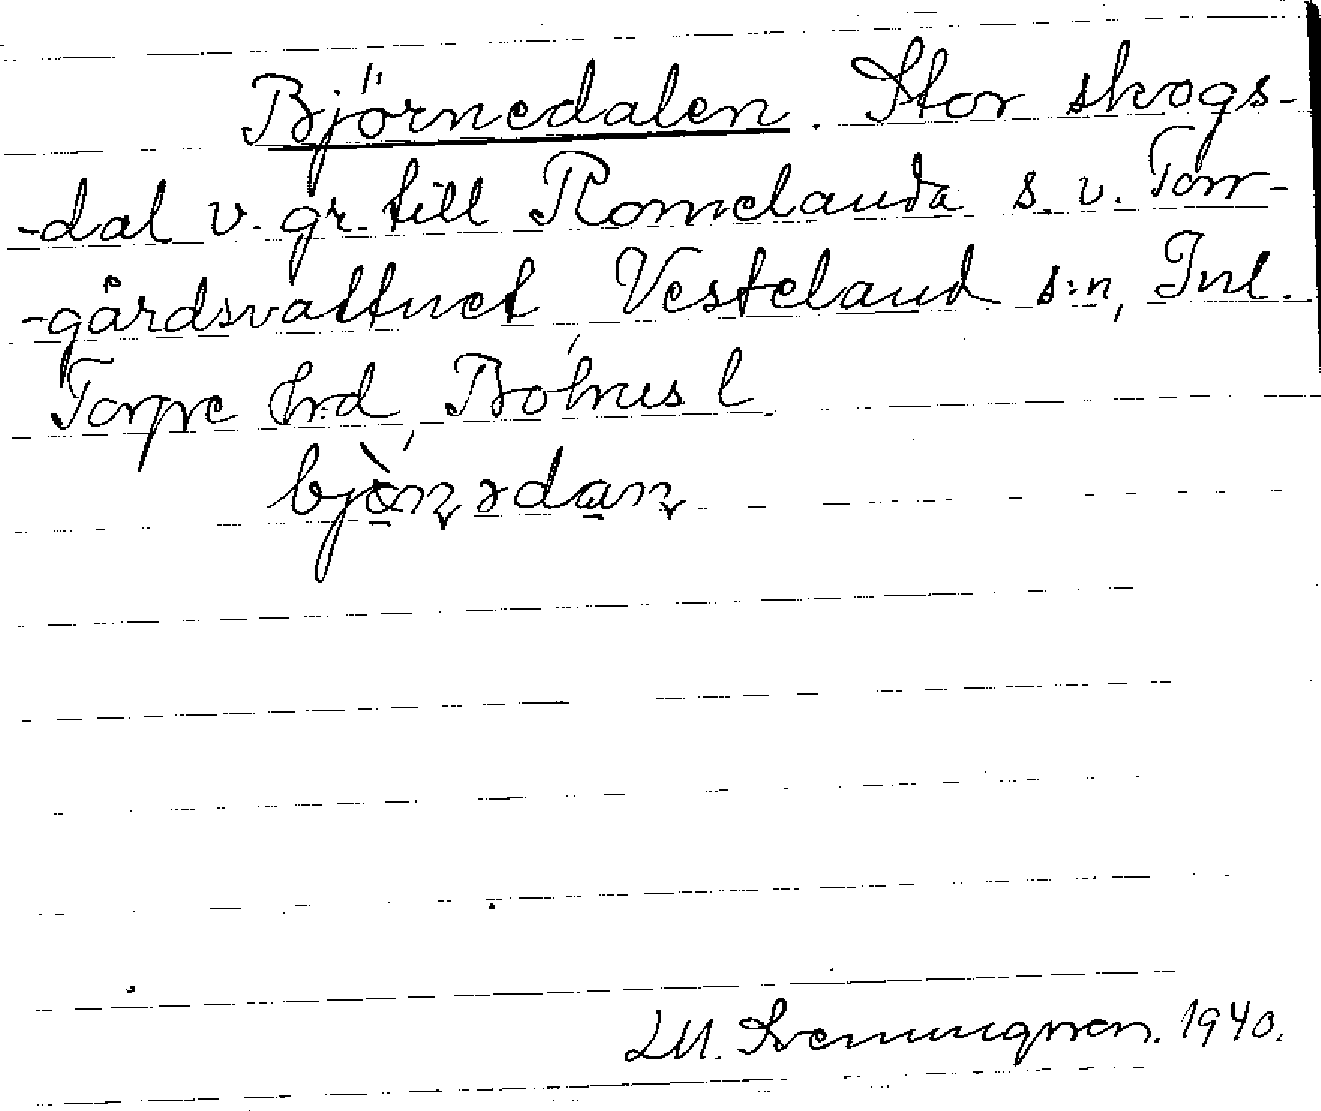 Björnedalen. Stor skogs-
-dal v. gr. till Romelanda s. v. Torr-
-gårdsvattnet, Vesteland s:n, Inl.
Torpe hrd, Bohus l.
bjö̀ṇədaṇ
1940.